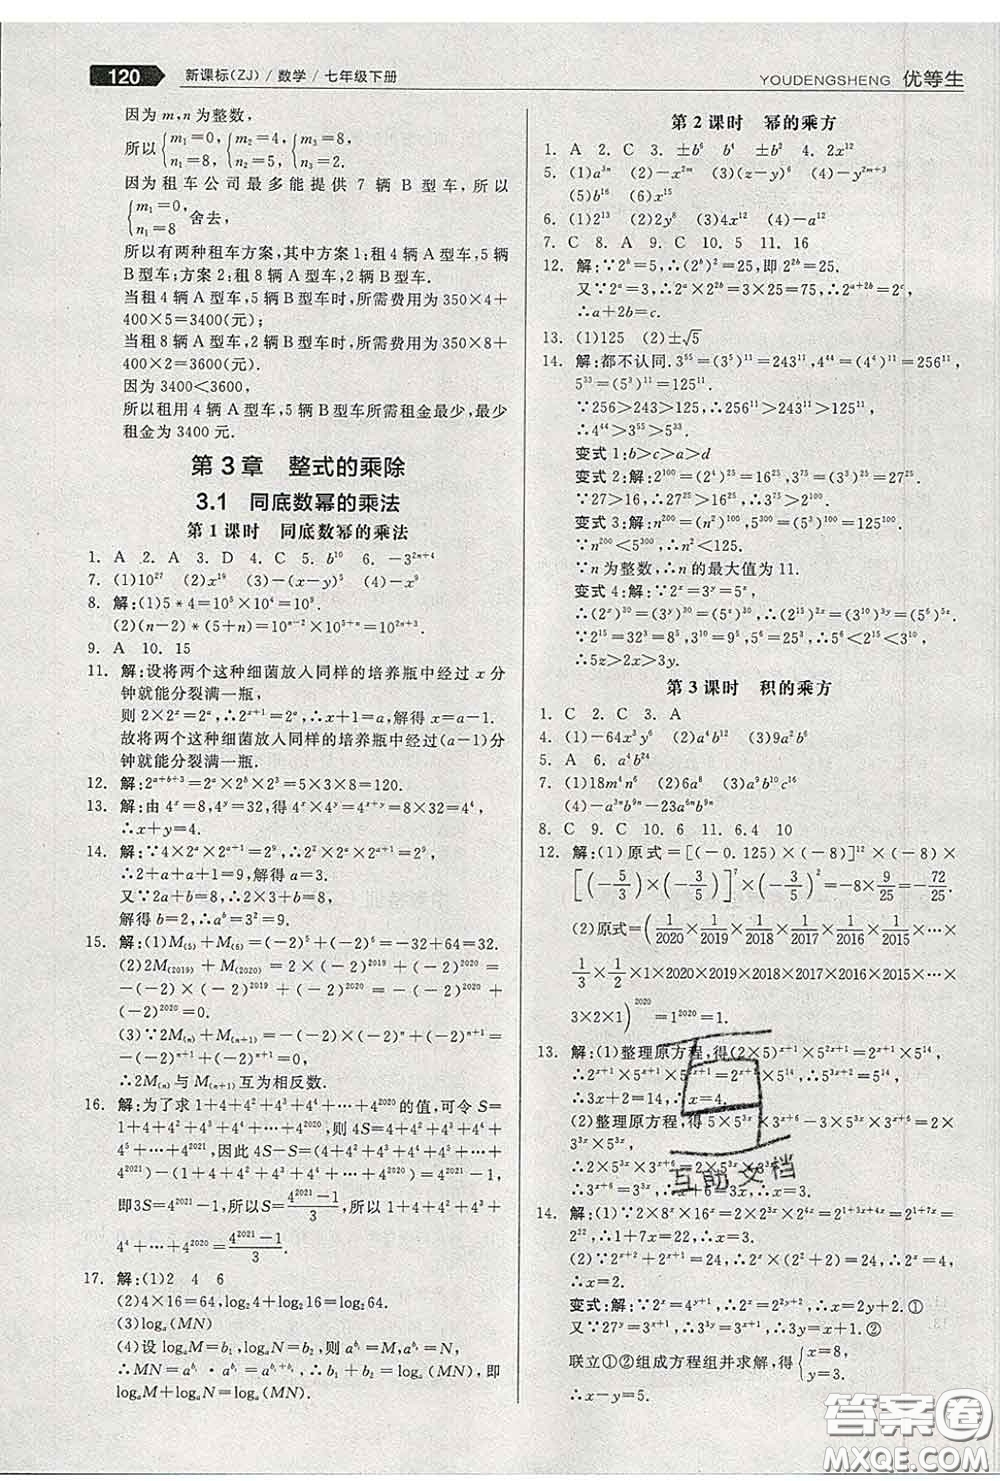 120 新课标(ZJ)/数学/七年级下册
YOUDENGSHENG 优等生
因为 m,n 为整数,
所以{m₁=0, n₁=8, {m₂=4, n₂=5, {m₃=8, n₃=2.
因为租车公司最多能提供 7 辆 B 型车,所以
{m₁=0, n₁=8 舍去,
所以有两种租车方案,其中方案 1:租 4 辆 A 型车,5 辆
B 型车;方案 2:租 8 辆 A 型车,2 辆 B 型车.
当租 4 辆 A 型车,5 辆 B 型车时,所需费用为 350×4+
400×5=3400(元);
当租 8 辆 A 型车,2 辆 B 型车时,所需费用为 350×8+
400×2=3600(元).
因为 3400<3600,
所以租用 4 辆 A 型车,5 辆 B 型车所需租金最少,最少
租金为 3400 元.
第 3 章 整式的乘除
3.1 同底数幂的乘法
第 1 课时 同底数幂的乘法
1. A 2. A 3. D 4. C 5. b¹⁰ 6. −3²ⁿ⁺⁴
7. (1)10²⁷ (2)x¹⁹ (3)−(x−y)⁵ (4)−x⁹
8. 解:(1)5*4=10⁵×10⁴=10⁹.
(2)(n−2)*(5+n)=10ⁿ⁻²×10⁵⁺ⁿ=10²ⁿ⁺³.
9. A 10. 15
11. 解:设将两个这种细菌放入同样的培养瓶中经过 x 分
钟就能分裂满一瓶,
则 2×2ˣ=2ᵃ,∴2ˣ⁺¹=2ᵃ,∴x+1=a,解得 x=a−1.
故将两个这种细菌放入同样的培养瓶中经过(a−1)分
钟就能分裂满一瓶.
12. 解:2ᵃ⁺ᵇ⁺³=2ᵃ×2ᵇ×2³=5×3×8=120.
13. 解:由 4ˣ=8,4ʸ=32,得 4ˣ×4ʸ=4ˣ⁺ʸ=8×32=4⁴,
∴x+y=4.
14. 解:∵4×2ᵃ×2ᵃ⁺¹=2⁹,∴2²×2ᵃ×2ᵃ⁺¹=2⁹,
∴2+a+a+1=9,解得 a=3.
又∵2a+b=8,∴2×3+b=8,
解得 b=2,∴aᵇ=3²=9.
15. 解:(1)M₍₅₎+M₍₆₎=(−2)⁵+(−2)⁶=−32+64=32.
(2)2M₍₂₀₁₉₎+M₍₂₀₂₀₎=2×(−2)²⁰¹⁹+(−2)²⁰²⁰=
−(−2)×(−2)²⁰¹⁹+(−2)²⁰²⁰=−(−2)²⁰²⁰+
(−2)²⁰²⁰=0.
(3)∵2M₍ₙ₎+M₍ₙ₊₁₎=−(−2)×(−2)ⁿ+(−2)ⁿ⁺¹=
−(−2)ⁿ⁺¹+(−2)ⁿ⁺¹=0,
∴2M₍ₙ₎与 M₍ₙ₊₁₎互为相反数.
16. 解:为了求 1+4+4²+4³+4⁴+…+4²⁰²⁰的值,可令 S=
1+4+4²+4³+4⁴+…+4²⁰²⁰,则 4S=4+4²+4³+4⁴+
…+4²⁰²¹,因此 4S−S=(4+4²+4³+4⁴+…+
4²⁰²¹)−(1+4+4²+4³+4⁴+…+4²⁰²⁰)=4²⁰²¹−1,
即 3S=4²⁰²¹−1,所以 S=(4²⁰²¹−1)/3,所以 1+4+4²+4³+
4⁴+…+4²⁰²⁰=(4²⁰²¹−1)/3.
17. 解:(1)2 4 6
(2)4×16=64,log₂4+log₂16=log₂64
(3)logₐ(MN)
(4)设 logₐM=b₁,logₐN=b₂,则 a^b₁=M,a^b₂=N,
∴MN=a^b₁·a^b₂=a^(b₁+b₂),∴b₁+b₂=logₐ(MN),即
logₐM+logₐN=logₐ(MN).
第 2 课时 幂的乘方
1. A 2. C 3. ±b⁶ b⁴ ±b² 4. 2x¹²
5. (1)a³ᵐ (2)−x⁶ (3)(x−y)⁶ (4)−y²ᵐ⁺³
(5)b¹⁶ (6)x⁴
6. (1)2¹³ (2)2y⁸ (3)4x¹²
7. C 8. A 9. C 10. 5 11. 16
12. 解:∵2ᵇ=5,∴(2ᵇ)²=25,即 2²ᵇ=25.
又∵2ᵃ=2,∴2ᵃ×2²ᵇ=2×25=50,∴2ᵃ⁺²ᵇ=2ᶜ,
∴a+2b=c.
13. (1)125 (2)±√5
14. 解:都不认同.3⁵⁵=(3⁵)¹¹=243¹¹,4⁴⁴=(4⁴)¹¹=256¹¹,
5³³=(5³)¹¹=125¹¹.
∵256>243>125,∴256¹¹>243¹¹>125¹¹,
∴4⁴⁴>3⁵⁵>5³³.
变式 1:b>c>a>d
变式 2:解:2¹⁰⁰=(2⁴)²⁵=16²⁵,3⁷⁵=(3³)²⁵=27²⁵.
∵27>16,∴27²⁵>16²⁵,∴3⁷⁵>2¹⁰⁰.
变式 3:解:n²⁰⁰=(n²)¹⁰⁰,5³⁰⁰=(5³)¹⁰⁰=125¹⁰⁰.
∵n²⁰⁰<5³⁰⁰,∴n²<125.
∵n 为整数,∴n 的最大值为 11.
变式 4:解:∵2ˣ=3ʸ=5ᶻ,
∴(2ˣ)³⁰=(3ʸ)³⁰=(5ᶻ)³⁰,∴(2¹⁵)²ˣ=(3¹⁰)³ʸ=(5⁶)⁵ᶻ.
∵2¹⁵=32³=8⁵,3¹⁰=9⁵,5⁶=25³,∴5⁶<2¹⁵<3¹⁰,
∴5z>2x>3y.
第 3 课时 积的乘方
1. C 2. C 3. A
4. (1)−64x³y⁶ (2)a⁴b¹² (3)9a²b⁴
5. A 6. a⁴b²⁴
7. (1)18m⁴n⁶ (2)6a⁸ (3)a⁹b¹⁰c¹⁶
(4)−a³ⁿb⁹ⁿ−23a⁶ⁿb⁹ⁿ
8. C 9. C 10. 6 11. 6.4 10
12. 解:(1)原式=[(−0.125)×(−8)]¹²×(−8)×
[(−5/3)×(−3/5)]⁷×(−3/5)²=−8×9/25=−72/25.
(2)原式=(1/2020×1/2019×1/2018×1/2017×1/2016×1/2015×…×
1/3×1/2×1×2020×2019×2018×2017×2016×2015×…×
3×2×1)²⁰²⁰=1²⁰²⁰=1.
13. 解:(1)整理原方程,得(2×5)ˣ⁺¹×5²ˣ⁺¹=2ˣ⁺¹×5¹⁴,
∴2ˣ⁺¹×5ˣ⁺¹×5²ˣ⁺¹=2ˣ⁺¹×5¹⁴,∴5³ˣ⁺²=5¹⁴,
∴3x+2=14,∴x=4.
(2)整理原方程,得 5×5³ˣ×3ˣ⁺⁶−5³ˣ×3ˣ⁺⁶=2×
∴3ˣ⁺⁶=3³ˣ,∴x+6=3x,∴x=3.
14. 解:(1)∵2×8ˣ×16ˣ=2×2³ˣ×2⁴ˣ=2¹⁺³ˣ⁺⁴ˣ=2¹⁺⁷ˣ=
2²²,∴1+7x=22,∴x=3.
(2)∵2ˣ⁺²+2ˣ⁺¹=24,∴2ˣ×(2²+2)=24,∴2ˣ=4,
∴x=2.
变式:解:∵2ˣ=4ʸ⁺¹,∴2ˣ=2²ʸ⁺²,∴x=2+2y.①
又∵27ʸ=3ˣ⁺¹,∴3³ʸ=3ˣ⁺¹,∴3y=x+1.②
联立①②组成方程组并求解,得{x=8, y=3,
∴x−y=5.
互助文档
答案圈
MXQE.COM